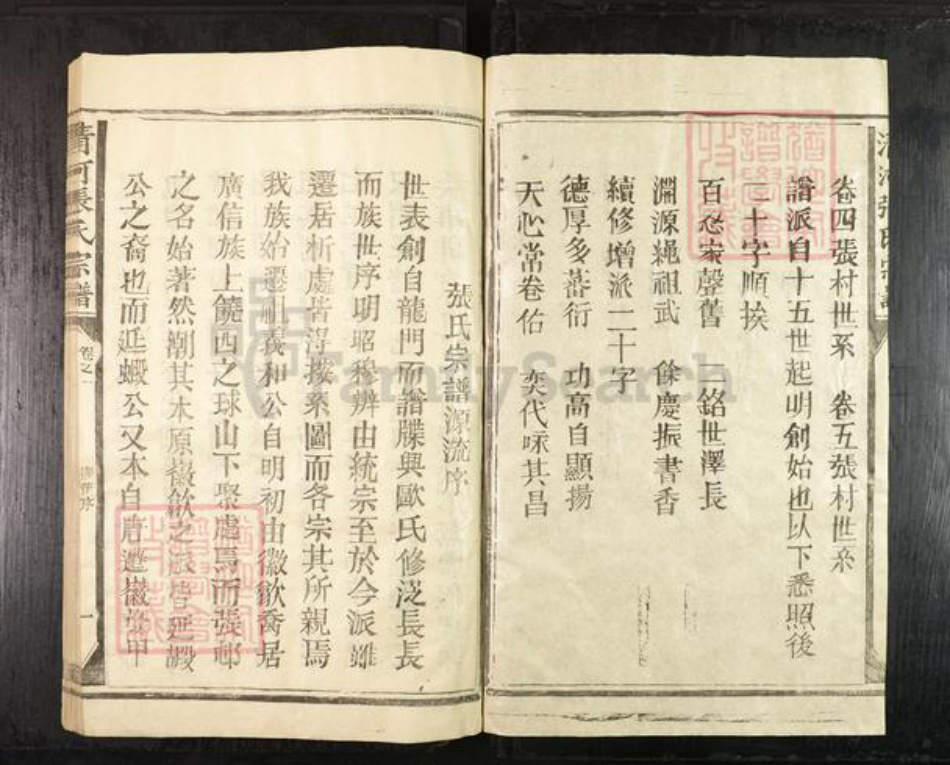 卷四張村世系　卷五張村世系
譜派自十五世起明創始也以下悉照後
二十字順挨
百忍家聲舊　二銘世澤長
淵源繩祖武　餘慶振書香
續修增派二十字
德厚多蕃衍　功高自顯揚
天心常卷佑　奕代咏其昌
張氏宗譜源流序
世表創自龍門而譜牒興歐氏修泛長長
而族世序明昭穆辨由統宗至於今派雖
遷居析處皆得按系圖而各宗其所親焉
我族始遷祖義和公自明初由徽歙喬居
廣信族上饒西之球山下聚處焉而張鄅
之名始著然溯其本原徽歙之
延嘏
公之裔也而延蝦公又本自唐遷徽
甲
清河張氏宗譜
卷之一
序
一
FamilySearch